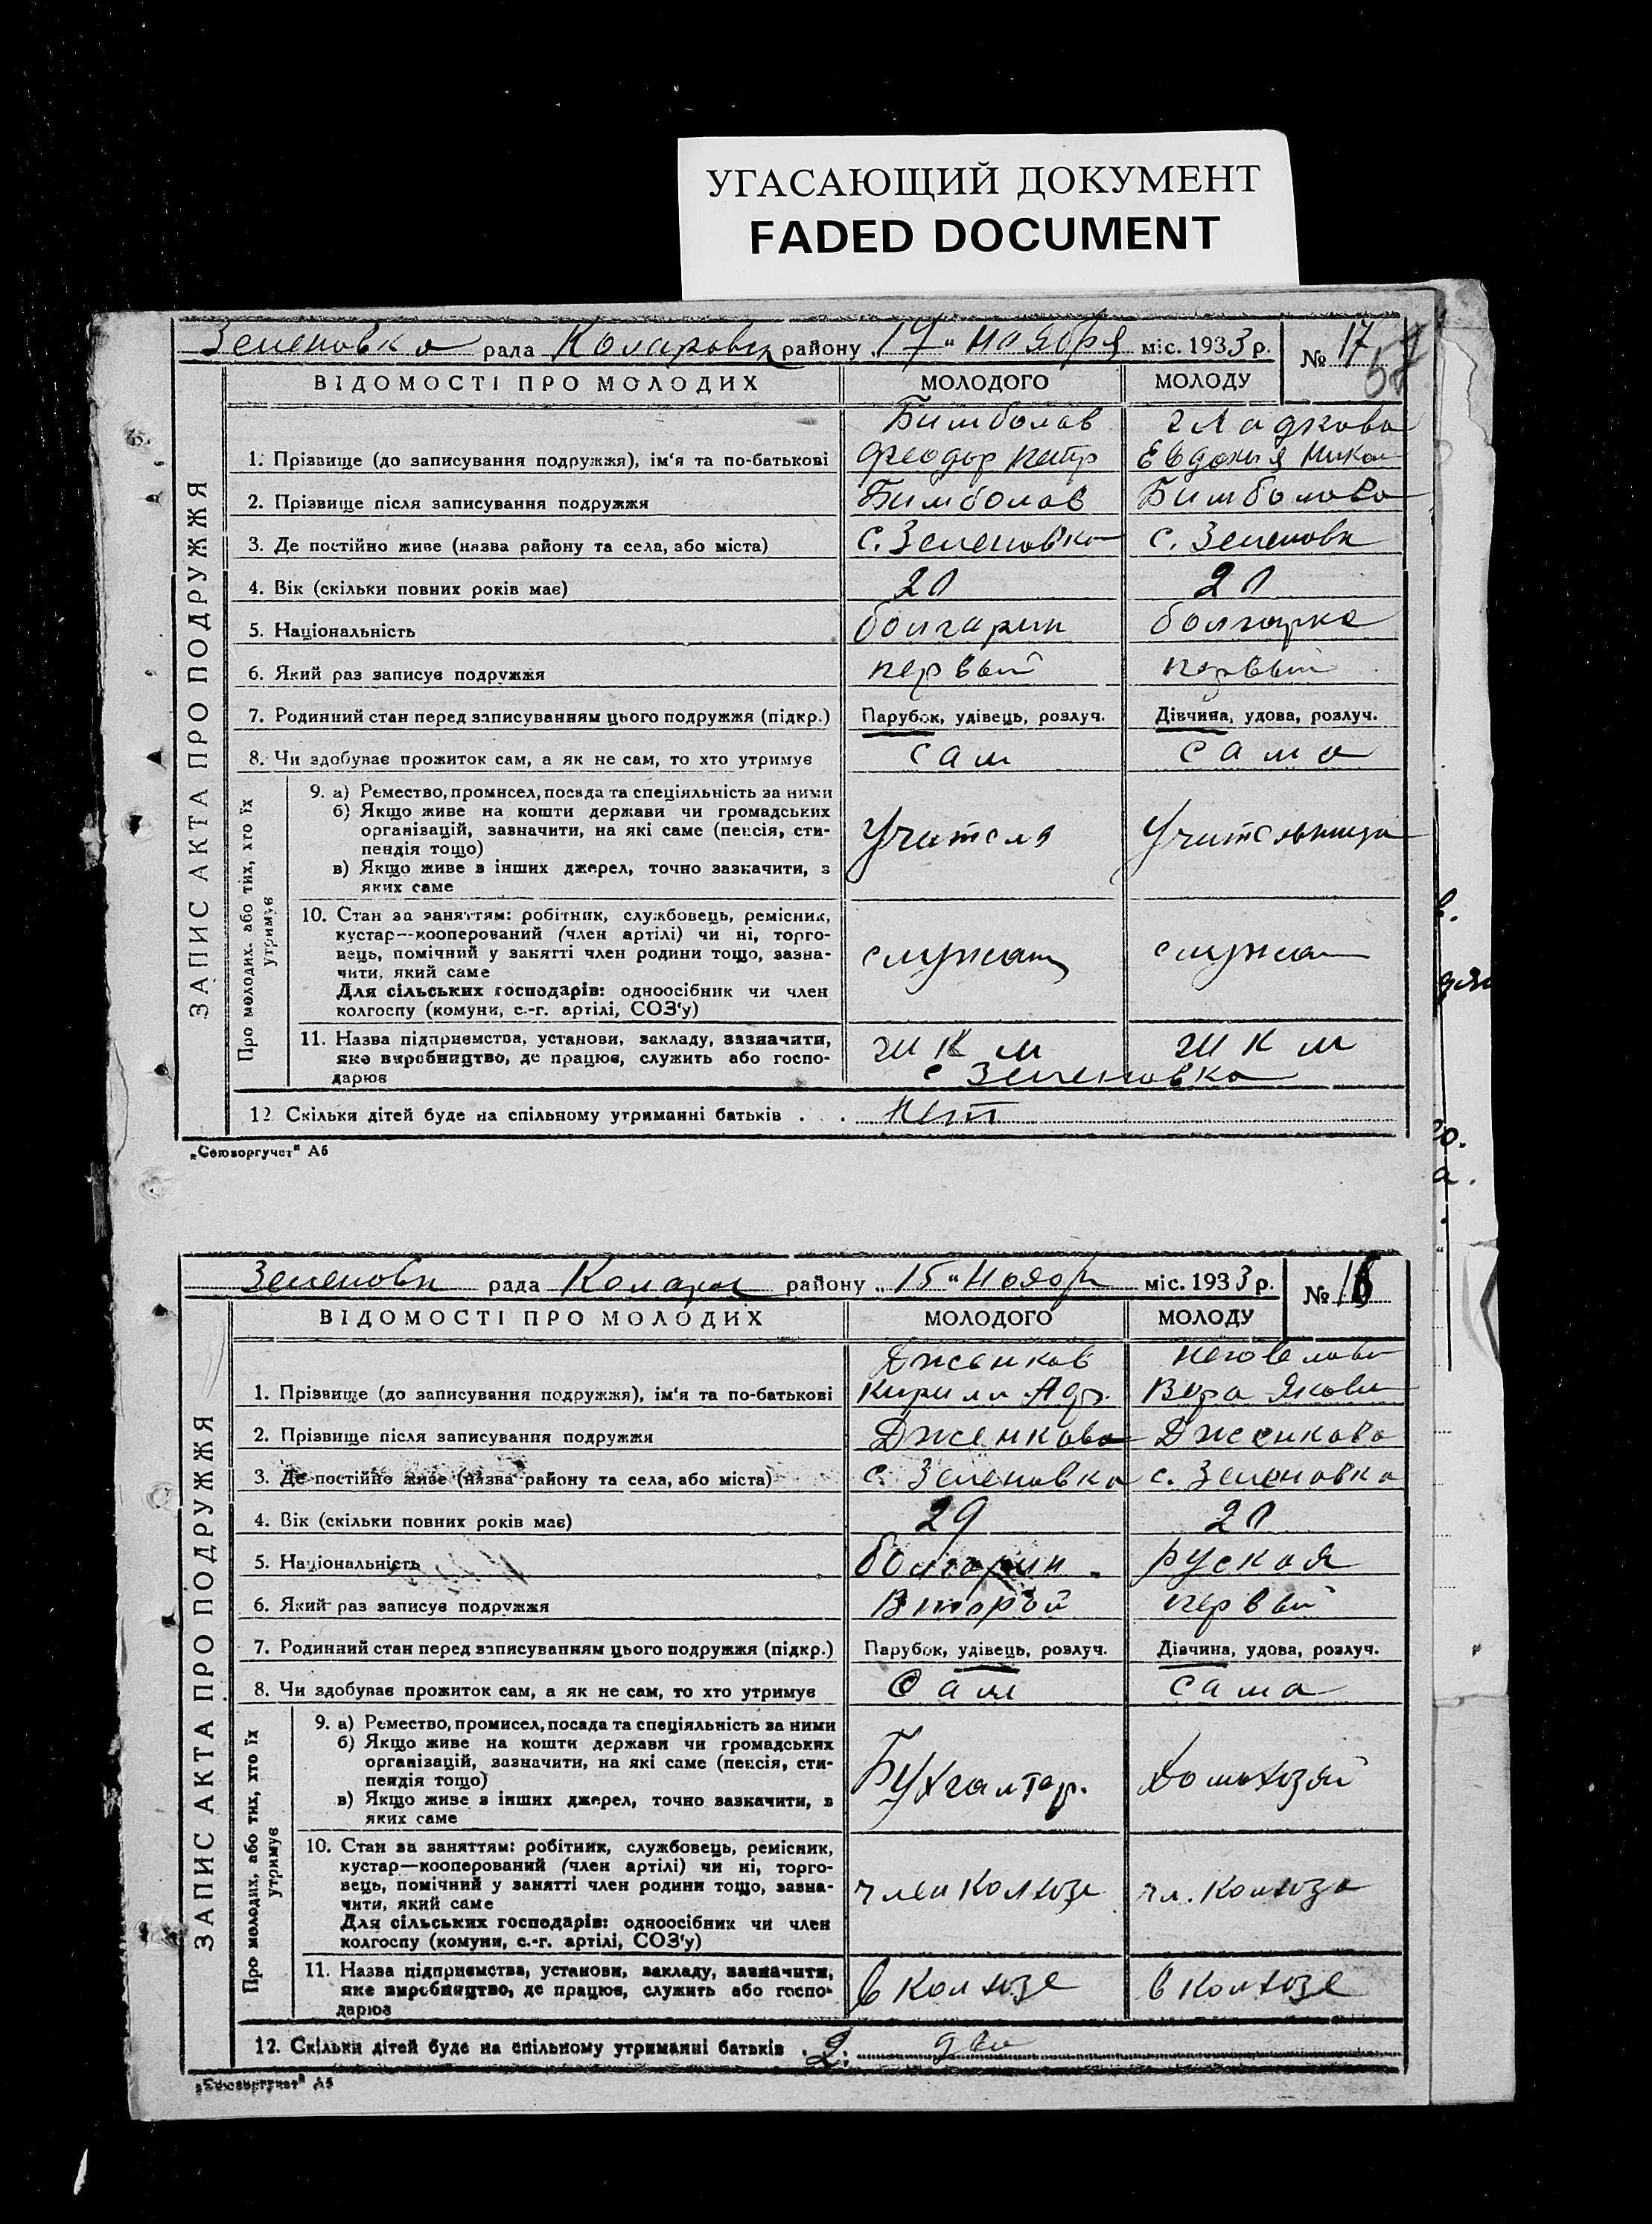 УГАСАЮЩИЙ ДОКУМЕНТ
FADED DOCUMENT
Зеленовка рада Коларовск району „17" ноября міс. 1933 р. № 17
ЗАПИС АКТА ПРО ПОДРУЖЖЯ
ВІДОМОСТІ ПРО МОЛОДИХ МОЛОДОГО МОЛОДУ
Бимболов Гладкова
1. Прізвище (до записування подружжя), ім'я та по-батькові Феодор Петр Евдокия Никол
2. Прізвище після записування подружжя Бимболов Бимболова
3. Де постійно живе (назва району та села, або міста) с. Зеленовка с. Зеленовк
4. Вік (скільки повних років має) 20 20
5. Національність болгарин болгарка
6. Який раз записує подружжя первый первый
7. Родинний стан перед записуванням цього подружжя (підкр.) Парубок, удівець, розлуч. Дівчина, удова, розлуч.
8. Чи здобуває прожиток сам, а як не сам, то хто утримує сам сама
Про молодих, або тих, хто їх утримує
9. а) Ремество, промисел, посада та спеціяльність за ними
б) Якщо живе на кошти держави чи громадських
організацій, зазначити, на які саме (пенсія, сти-
пендія тощо) Учителя Учительница
в) Якщо живе в інших джерел, точно зазначити, з
яких саме
10. Стан за заняттям: робітник, службовець, ремісник,
кустар—кооперований (член артілі) чи ні, торго-
вець, помічний у занятті член родини тощо, зазна- служащ служа
чити, який саме
Для сільських господарів: одноосібник чи член
колгоспу (комуни, с.-г. артілі, СОЗ'у)
11. Назва підприємства, установи, закладу, зазначити, ШКМ ШКМ
яке виробництво, де працює, служить або госпо-
дарює с Зеленовка
12. Скільки дітей буде на спільному утриманні батьків . . нет
„Союзоргучет" А5
Зеленовк рада Колар району „15" Ноябр міс. 1933 р. № 16
ЗАПИС АКТА ПРО ПОДРУЖЖЯ
ВІДОМОСТІ ПРО МОЛОДИХ МОЛОДОГО МОЛОДУ
Дженков
1. Прізвище (до записування подружжя), ім'я та по-батькові Кирилл Вера Якови
2. Прізвище після записування подружжя Дженкова Дженкова
3. Де постійно живе (назва району та села, або міста) с. Зеленовка с. Зеленовка
4. Вік (скільки повних років має) 29 20
5. Національність болгарин руская
6. Який раз записує подружжя Второй первый
7. Родинний стан перед записуванням цього подружжя (підкр.) Парубок, удівець, розлуч. Дівчина, удова, розлуч.
8. Чи здобуває прожиток сам, а як не сам, то хто утримує Сам сама
Про молодих, або тих, хто їх утримує
9. а) Ремество, промисел, посада та спеціяльність за ними
б) Якщо живе на кошти держави чи громадських
організацій, зазначити, на які саме (пенсія, сти-
пендія тощо) Бухгалтер. Домохозяй
в) Якщо живе з інших джерел, точно зазначити, в
яких саме
10. Стан за заняттям: робітник, службовець, ремісник,
кустар—кооперований (член артілі) чи ні, торго-
вець, помічний у занятті член родини тощо, зазна- член Колхоза чл. Колхоза
чити, який саме
Для сільських господарів: одноосібник чи член
колгоспу (комуни, с.-г. артілі, СОЗ'у)
11. Назва підприємства, установи, закладу, зазначити, в Колхозе в Колхозе
яке виробництво, де працює, служить або госпо-
дарює
12. Скільки дітей буде на спільному утриманні батьків . 2. два
„Союзоргучет" А5